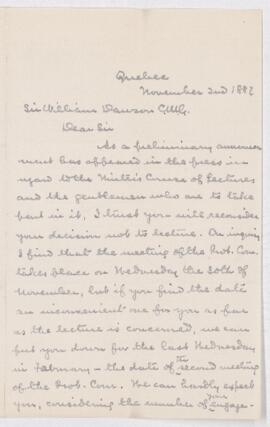 Quebec
November 2nd 1887
Sir William Dawson C.M.G.
Dear Sir
As a preliminary announce-
ment has appeared in the press in
regard to the Winter's Course of Lectures
and the gentlemen who are to take
part in it, I trust you will reconsider
your decision not to lecture. On inquiry
I find that the meeting of the Prot. Com.
takes place on Wednesday the 30th of
November, but if you find the date
an inconvenient one for you as far
as the lecture is concerned, we can
put you down for the last Wednesday
in February - the date of the second meeting
of the Prob. Com. We can hardly expect
you, considering the number of your engage-